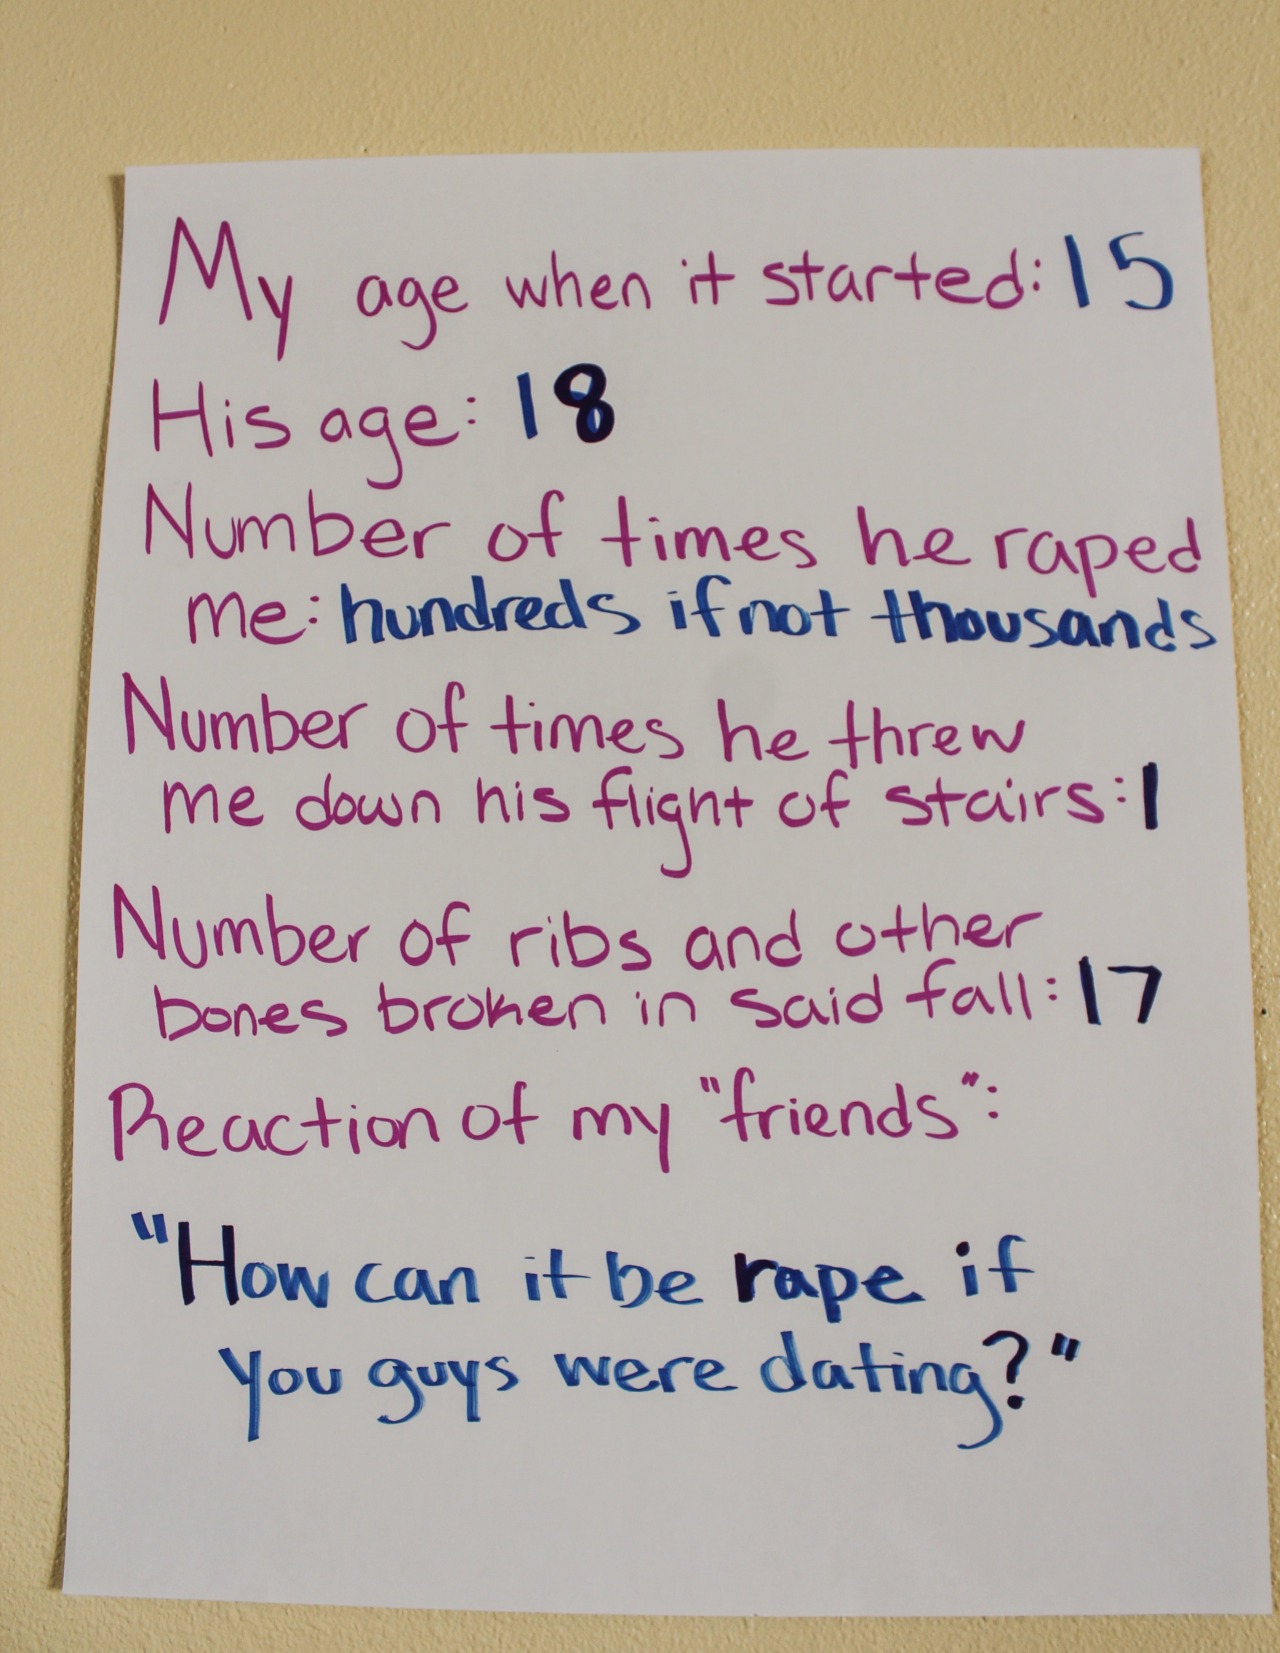 My age when it started: 15
His age: 18
Number of times he raped
me: hundreds if not thousands
Number of times he threw
me down his flight of stairs: 1
Number of ribs and other
bones broken in said fall: 17
Reaction of my "friends":
"How can it be rape if
you guys were dating?"